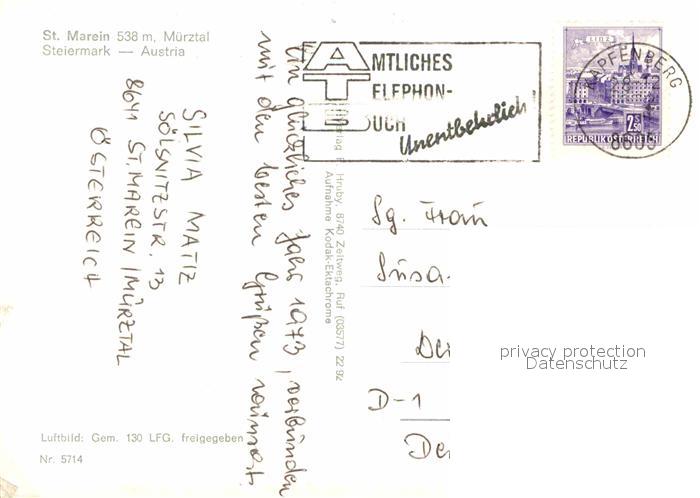 St. Marein 538 m, Mürztal
Steiermark — Austria
AMTLICHES
TELEPHON-
BUCH
Unentbehrlich!
LINZ
2.50
REPUBLIK ÖSTERREICH
KAPFENBERG
8605
Ein glückliches Jahr 1973, verbunden
mit den besten Grüßen wünscht
SILVIA MATIZ
SÖLSNITZSTR. 13
8641 ST. MAREIN / MÜRZTAL
ÖSTERREICH
Hruby, 8740 Zeltweg, Ruf (03577) 22 92
Aufnahme Kodak-Ektachrome
Sg. Frau
Susa
D-1
privacy protection
Datenschutz
Luftbild: Gem. 130 LFG. freigegeben
Nr. 5714